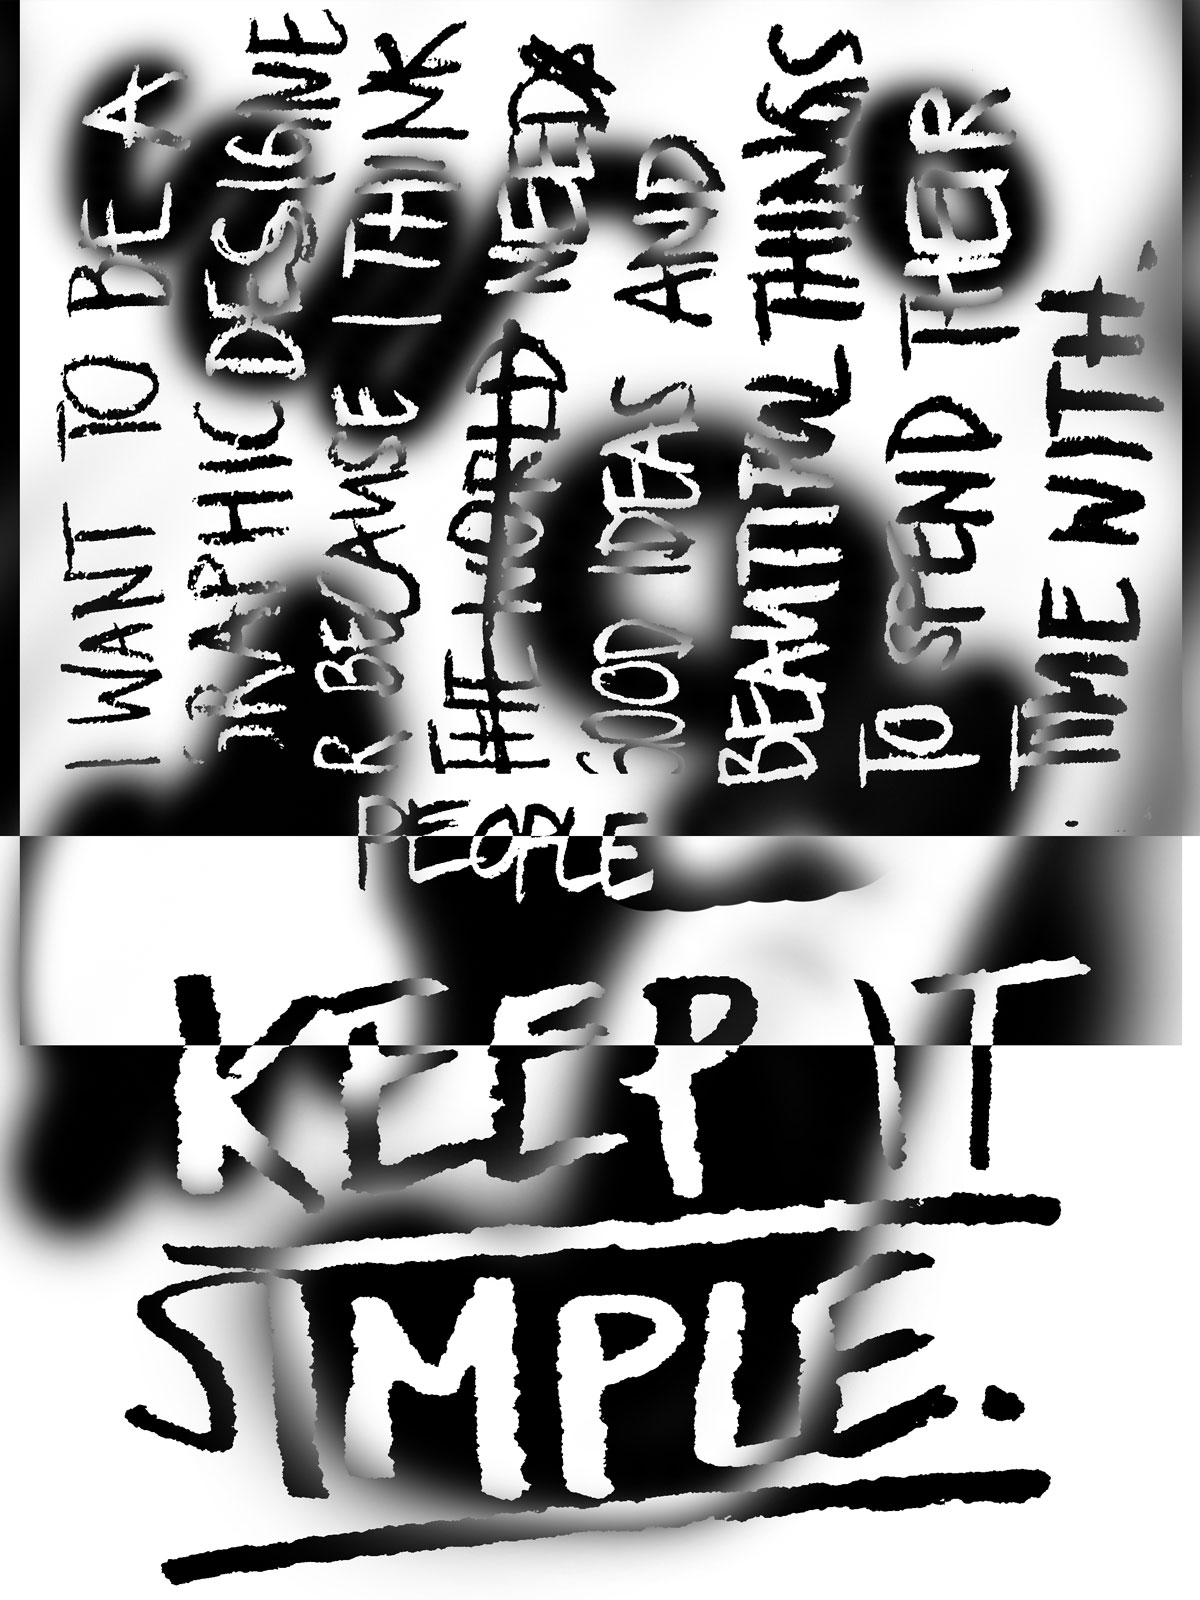 I WANT TO BE A
GRAPHIC DESIGNE
R BECAUSE I THINK
THE WORLD NEED
GOOD IDEAS AND
BEAUTIFUL THINGS
TO SPEND THEIR
TIME WITH.
PEOPLE
KEEP IT
SIMPLE.